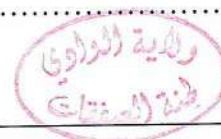 ولاية الوادي
لجنة الصفقات